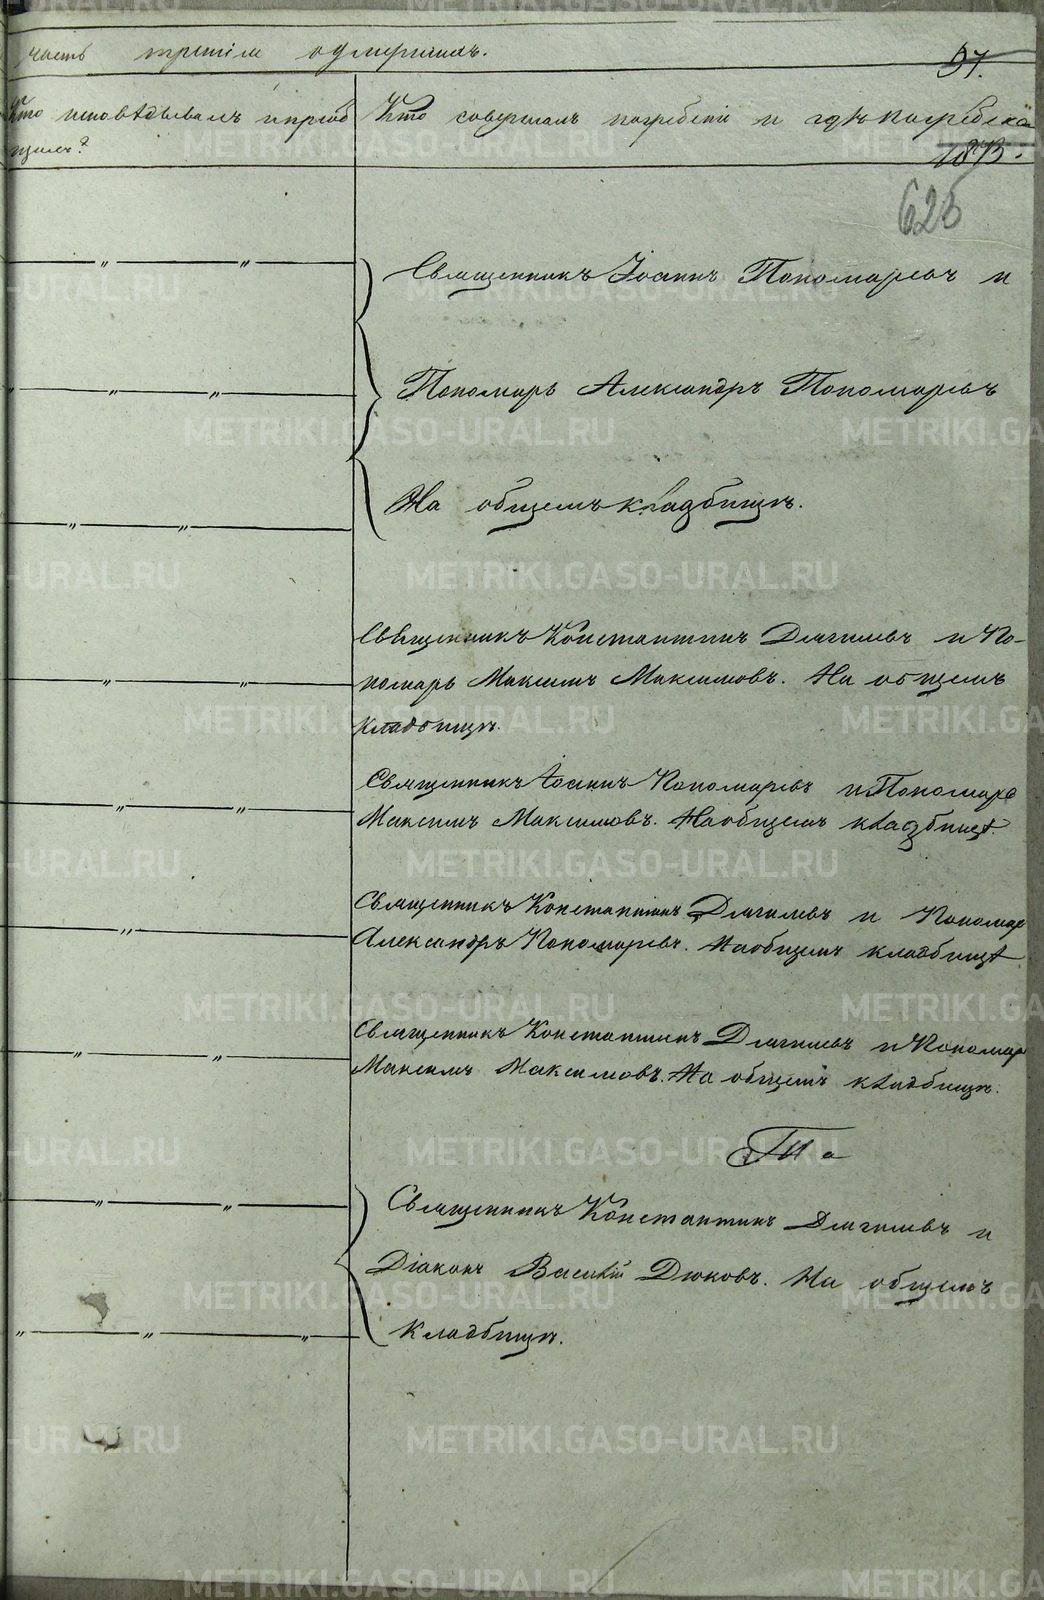 часть третія о умершихъ.
57.
Кто исповѣдывалъ и пріоб
щалъ?
Кто совершалъ погребеніе и гдѣ погребены
628
Священникъ Іоаннъ Пономаревъ и
Пономарь Александръ Пономаревъ
На общемъ кладбищѣ.
Священникъ Константинъ Дягилевъ и По-
номарь Максимъ Максимовъ. На общемъ
кладбищѣ.
Священникъ Іоаннъ Пономаревъ и Пономарь
Максимъ Максимовъ. На общемъ кладбищѣ.
Священникъ Константинъ Дягилевъ и Пономар
Александръ Пономаревъ. На общемъ кладбищѣ
Священникъ Константинъ Дягилевъ и Пономар
Максимъ Максимовъ. На общемъ кладбищѣ.
Священникъ Константинъ Дягилевъ и
Діаконъ Василій Дюковъ. На общемъ
кладбищѣ.
METRIKI.GASO-URAL.RU